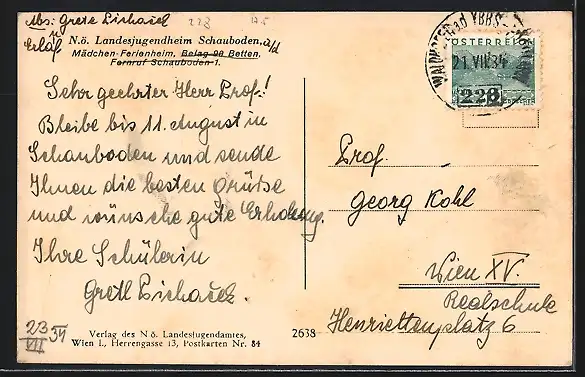 Abs: Grete Lichaček
228
N.ö. Landesjugendheim Schauboden, a/d
Erlaf
Mädchen-Ferienheim, Belag 98 Betten,
Fernruf Schauboden 1.
Sehr geehrter Herr Prof.!
Bleibe bis 11. August in
Schauboden und sende
Ihnen die besten Grüße
und wünsche gute Erholung.
Ihre Schülerin
Gretl Lichaček.
23/VII 34
Verlag des N.ö. Landesjugendamtes,
Wien I., Herrengasse 13, Postkarten Nr. 84
2638
WAIDHOFEN a.d. YBBS
21 VII 34
ÖSTERREICH
226
Prof.
Georg Kohl
Wien XV.
Realschule
Henriettenplatz 6